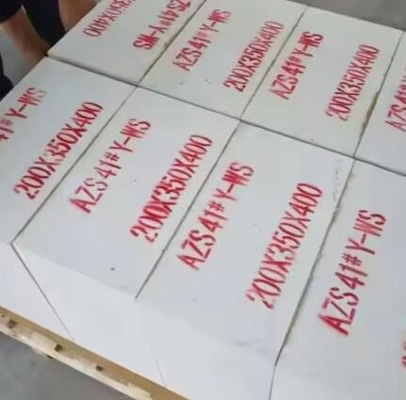 200X350X400
AZS41#Y-WS
AZS41#Y-WS
200X350X400
AZS41#Y-WS
200X350X400
Y-WS
200X350X400
AZS41#Y-WS
200X350X400
AZS41#Y-WS
200X350X400
AZS41#Y-WS